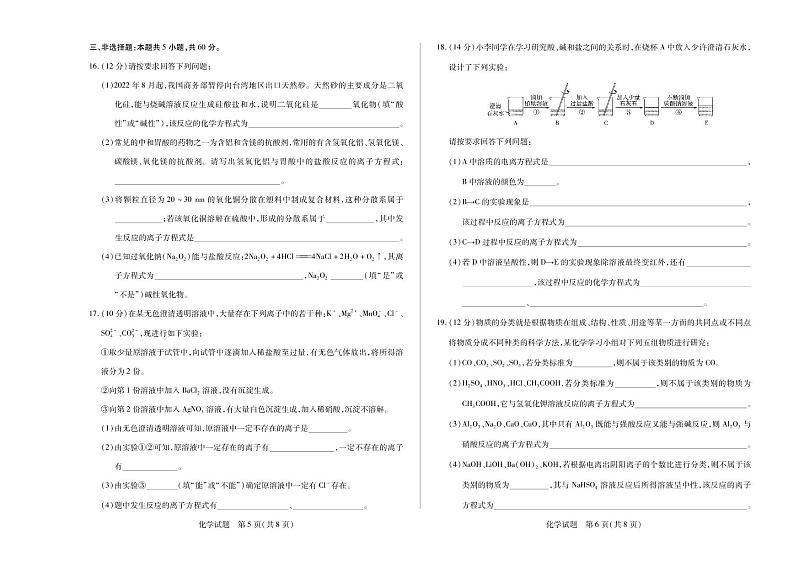 三、非选择题:本题共 5 小题,共 60 分。
16.(12 分)请按要求回答下列问题:
(1)2022 年 8 月起,我国商务部暂停向台湾地区出口天然砂。天然砂的主要成分是二氧
化硅,能与烧碱溶液反应生成硅酸盐和水,说明二氧化硅是________氧化物(填“酸
性”或“碱性”),该反应的化学方程式为________。
(2)常见的中和胃酸的药物之一为含铝和含镁的抗酸剂,常用的有含氢氧化铝、氢氧化镁、
碳酸镁、氧化镁的抗酸剂。请写出氢氧化铝与胃酸中的盐酸反应的离子方程式:
________。
(3)将颗粒直径为 20 ~ 30 nm 的氧化铜分散在塑料中制成复合材料,这种分散系属于
________;若该氧化铜溶解在硫酸中,形成的分散系属于________,其中发
生反应的离子方程式是________。
(4)已知过氧化钠(Na₂O₂)能与盐酸反应:2Na₂O₂ + 4HCl ══ 4NaCl + 2H₂O + O₂↑,其离
子方程式为________,Na₂O₂ ________(填“是”或
“不是”)碱性氧化物。
17.(10 分)在某无色澄清透明溶液中,大量存在下列离子中的若干种:K⁺、Mg²⁺、MnO₄⁻、Cl⁻、
SO₄²⁻、CO₃²⁻,现进行如下实验:
①取少量原溶液于试管中,向试管中逐滴加入稀盐酸至过量,有无色气体放出,将所得溶
液分为 2 份。
②向第 1 份溶液中加入 BaCl₂ 溶液,没有沉淀生成。
③向第 2 份溶液中加入 AgNO₃ 溶液,有大量白色沉淀生成,加入稀硝酸,沉淀不溶解。
(1)由无色澄清透明溶液可知,原溶液中一定不存在的离子是________。
(2)由实验①②可知,原溶液中一定存在的离子有________,一定不存在的离子
有________。
(3)由实验③________(填“能”或“不能”)确定原溶液中一定有 Cl⁻存在。
(4)题中发生反应的离子方程式有________、________。
化学试题 第 5 页(共 8 页)
18.(14 分)小李同学在学习研究酸、碱和盐之间的关系时,在烧杯 A 中放入少许澄清石灰水,
设计了下列实验:
澄清石灰水 滴加植酚溶液 ① 加入过量盐酸 ② 加入少量石灰石 ③ 不断滴加碳酸钠溶液 ④
A B C D E
请按要求回答下列问题:
(1)A 中溶质的电离方程式是________,
B 中溶液的颜色为________。
(2)B→C 的实验现象是________,
该过程中反应的离子方程式为________。
(3)C→D 过程中反应的离子方程式为________。
(4)若 D 中溶液呈酸性,则 D→E 的实验现象除溶液最终变红外,还有________
________,该过程中反应的离子方程式为________
________、________。
19.(12 分)物质的分类就是根据物质在组成、结构、性质、用途等某一方面的共同点或不同点
将物质分成不同种类的科学方法,某化学学习小组对下列五组物质进行研究:
(1)CO、CO₂、SO₂、SO₃,若分类标准为________,则不属于该类别的物质为 CO。
(2)H₂SO₄、HNO₃、HCl、CH₃COOH,若分类标准为________,则不属于该类别的物质为
CH₃COOH,它与氢氧化钾溶液反应的离子方程式为________。
(3)Al₂O₃、Na₂O、CaO、CuO,其中只有 Al₂O₃ 既能与强酸反应又能与强碱反应,则 Al₂O₃ 与
硝酸反应的离子方程式为________。
(4)NaOH、LiOH、Ba(OH)₂、KOH,若根据电离出阴阳离子的个数比进行分类,则不属于该
类别的物质为________,其与 NaHSO₄ 溶液反应后所得溶液呈中性,该反应的离子
方程式为________。
化学试题 第 6 页(共 8 页)